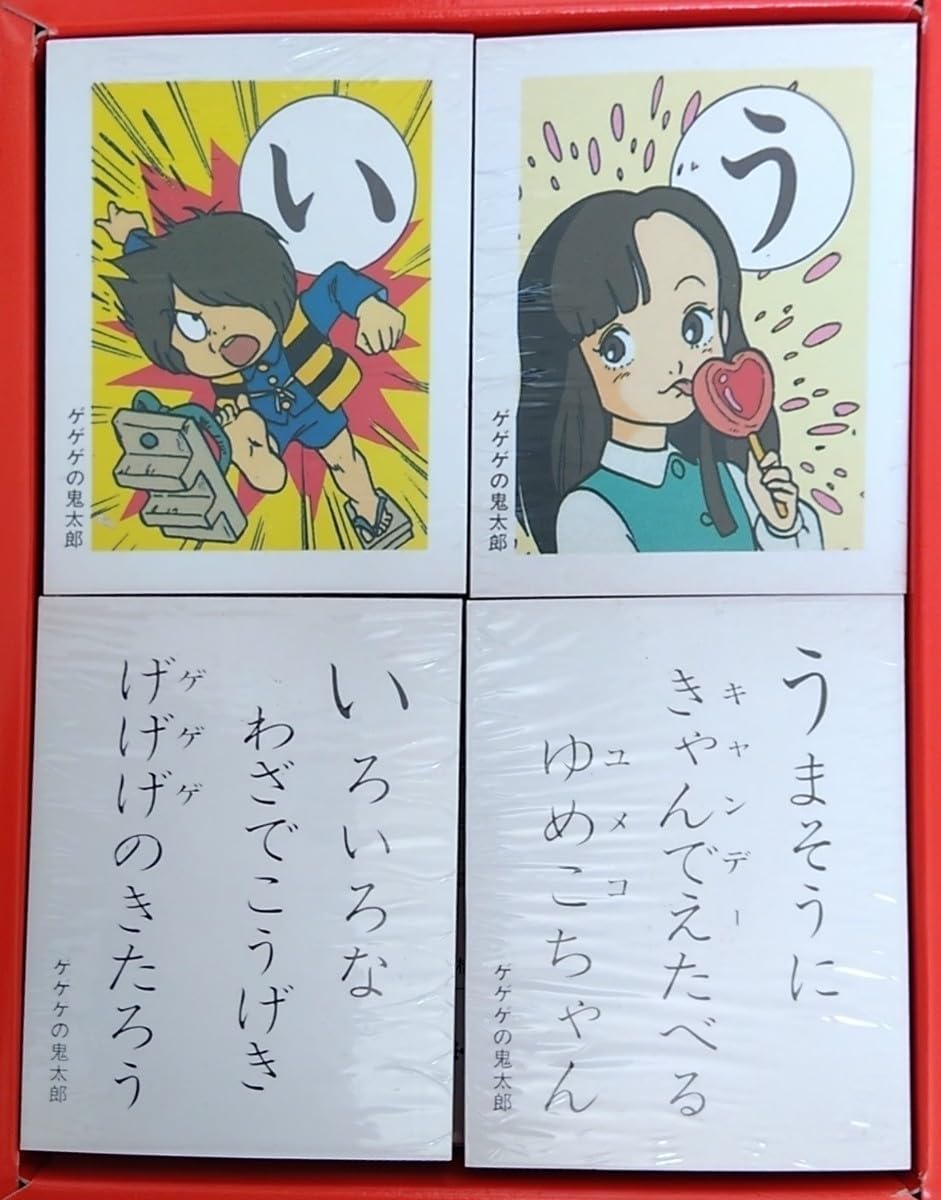 い
ゲゲゲの鬼太郎
う
ゲゲゲの鬼太郎
いろいろな
わざでこうげき
げげげのきたろう
ゲゲゲ
ゲゲゲの鬼太郎
うまそうに
きゃんでえたべる
キャンデー
ゆめこちゃん
ユメコ
ゲゲゲの鬼太郎